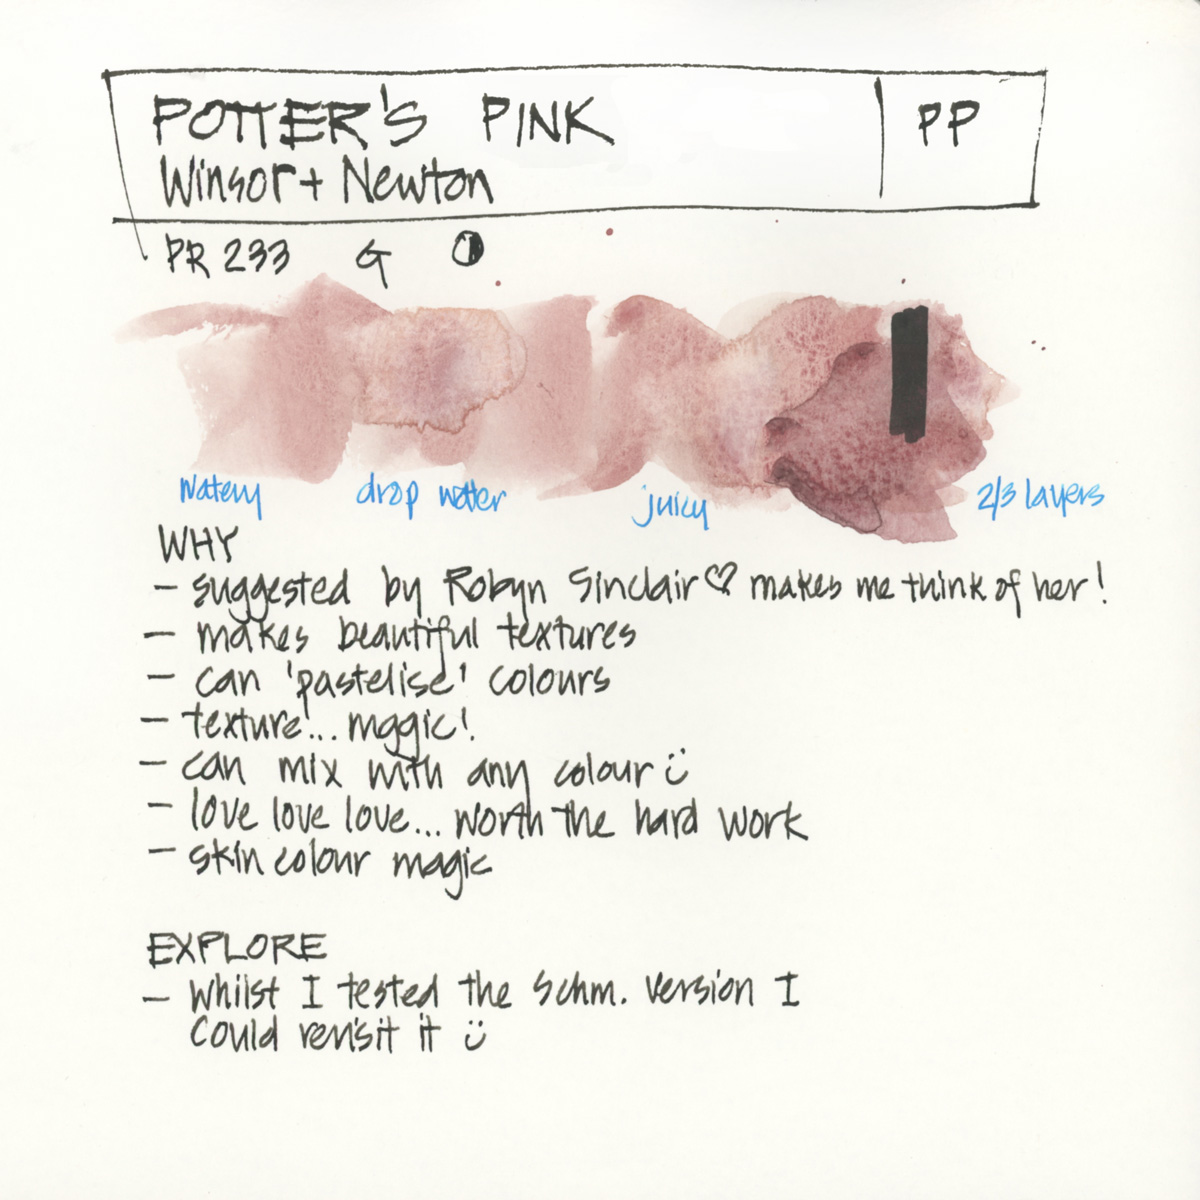 POTTER'S PINK
PP
Winsor + Newton
PR 233 G
watery
drop water
juicy
2/3 layers
WHY
- suggested by Robyn Sinclair♡ makes me think of her!
- makes beautiful textures
- can 'pastelise' colours
- texture!... magic!
- can mix with any colour ü
- love love love... worth the hard work
- skin colour magic
EXPLORE
- whilst I tested the Schm. version I
could revisit it ü